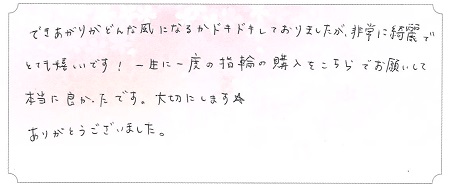 できあがりがどんな風になるかドキドキしておりましたが、非常に綺麗で
とても嬉しいです！一生に一度の指輪の購入をこちらでお願いして
本当に良かったです。大切にします☆
ありがとうございました。